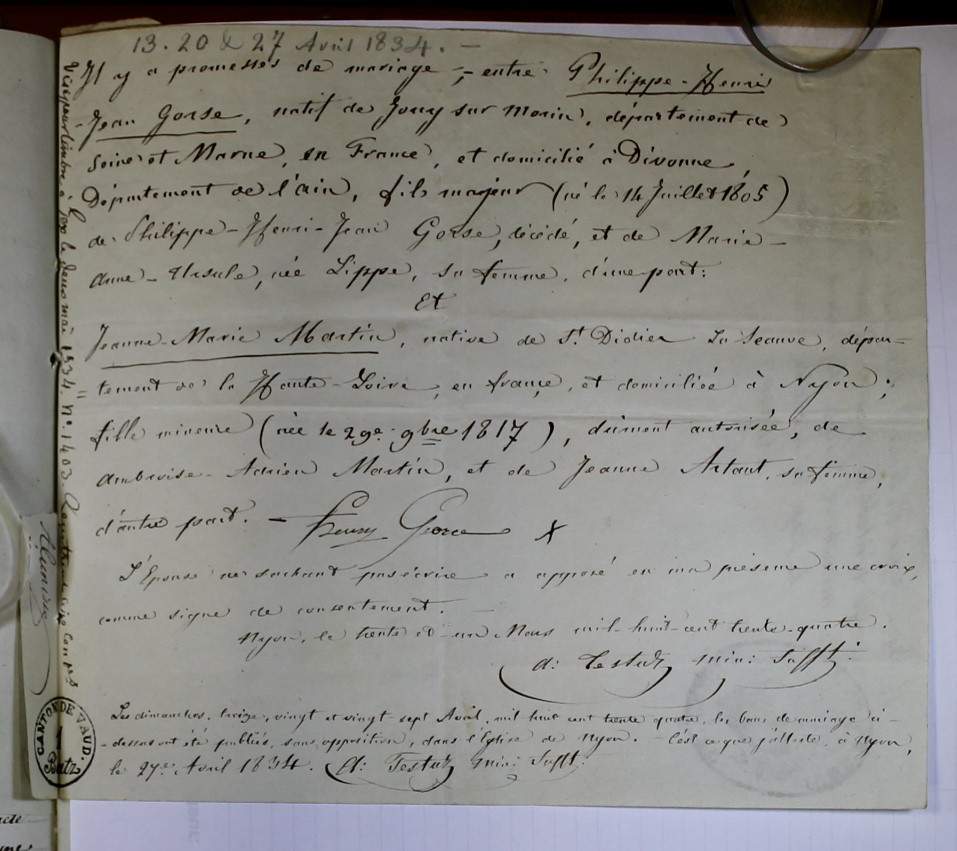 13. 20 & 27 Avril 1834. —
Il y a promesses de mariage, - entre Philippe-Henri
-Jean Gorse, natif de Jouy sur Morin, département de
Seine et Marne, en France, et domicilié à Divonne,
Département de l'ain, fils majeur (né le 14 Juillet 1805)
de Philippe-Henri-Jean Gorse, décédé, et de Marie-
Anne-Ursule, née Lippe, sa femme, d'une part:
Et
Jeanne-Marie Martin, native de St. Didier La Seauve, dépar-
-tement de la Haute-Loire, en france, et domiciliée à Nyon;
fille mineure (née le 29e. 9bre 1817), dûment autorisée, de
Ambroise-Adrien Martin, et de Jeanne Artaut, sa femme,
d'autre part. — Henry Gorce X
L'Epouse ne sachant pas écrire a apposé en ma présence une croix,
comme signe de consentement. —
Nyon, le trente et un Mars mil-huit-cent trente-quatre.
A: Testuz min: Sufft:
Les dimanches, treize, vingt et vingt-sept Avril, mil huit cent trente quatre, les bans de mariage ci-
-dessus ont été publiés, sans opposition, dans l'Eglise de Nyon. - C'est ce que j'atteste, à Nyon,
le 27e. Avril 1834. A: Testuz min: Sufft:
Visé pour timbre à Gex le deux mai 1834. N°. 1403
CANTON DE VAUD.
1
Batz